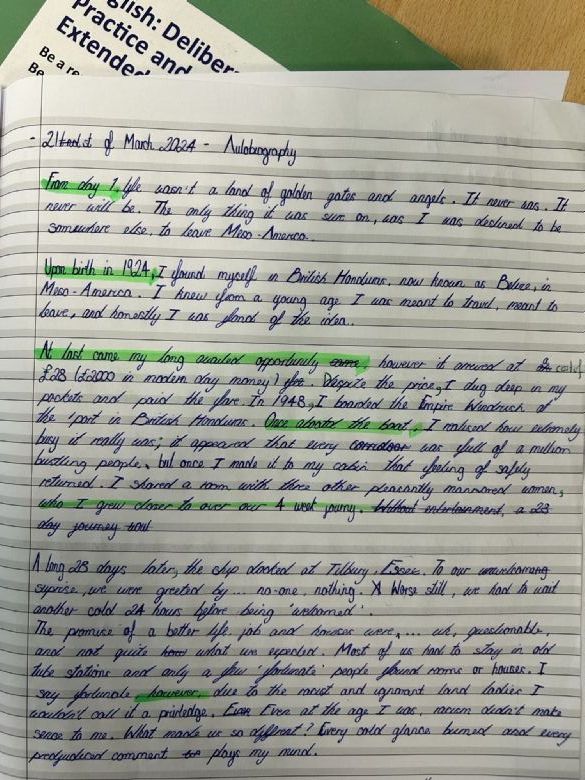 glish: Deliber
Practice and
Extended
Be a re
Be
- 21st of March 2024 - Autobiography
From day 1, life wasn't a land of golden gates and angels. It never was. It
never will be. The only thing it was sure on, was I was destined to be
somewhere else, to leave Meso-America.
Upon birth in 1924, I found myself in British Honduras, now known as Belize, in
Meso-America. I knew from a young age I was meant to travel, meant to
leave, and honestly I was fond of the idea.
At last came my long awaited opportunity came, however it arrived at cost
£28 (£2000 in modern day money) fare. Despite the price, I dug deep in my
pockets and paid the fare. In 1948, I boarded the Empire Windrush at
the port in British Honduras. Once aboard the boat, I realised how extremely
busy it really was; it appeared that every corridoor was full of a million
bustling people, but once I made it to my cabin that feeling of safety
returned. I shared a room with three other pleasantly mannored women,
who I grew closer to over our 4 week journy. Without entertainment, a 28
day journey
A long 28 days later, the ship docked at Tilbury, Essex. To our unwelcoming
suprise, we were greeted by... no-one, nothing. Worse still, we had to wait
another cold 24 hours before being 'welcomed'.
The promise of a better life, job and houses were,... uh, questionable,
and not quite how what we expected. Most of us had to stay in old
tube stations and only a few 'fortunate' people found rooms or houses. I
say fortunate, however, due to the racist and ignorant land ladies I
wouldn't call it a priviledge. Even Even at the age I was, racism didn't make
sense to me. What made us so different? Every cold glance burned and every
predjudiced comment plays my mind.